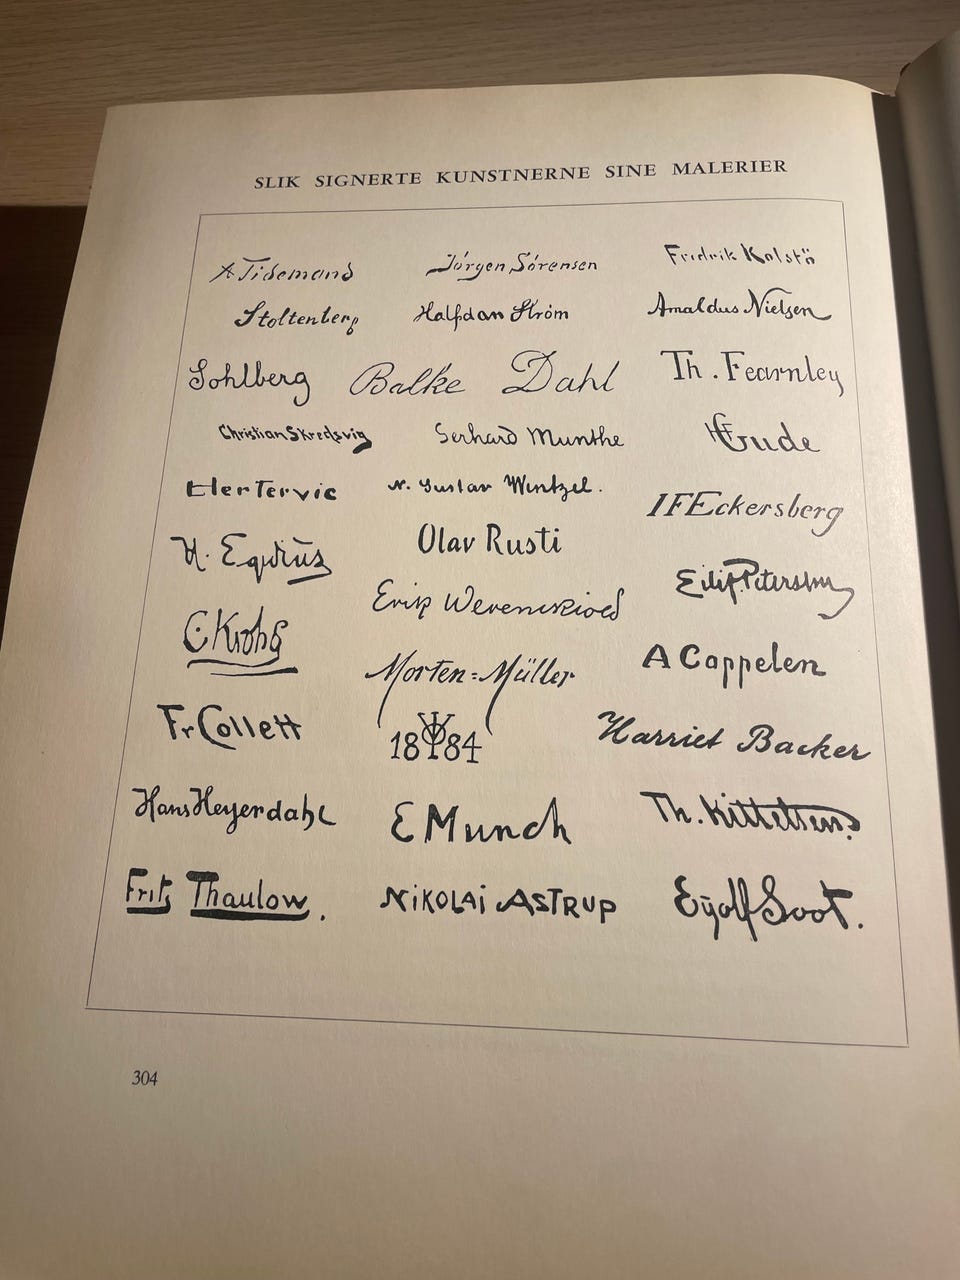 SLIK SIGNERTE KUNSTNERNE SINE MALERIER
A Tidemand
Jörgen Sörensen
Fredrik Kolstö
Stoltenberg
Halfdan Ström
Amaldus Nielsen
Sohlberg
Balke
Dahl
Th. Fearnley
Christian Skredsvig
Gerhard Munthe
HFGude
Hertervig
N. Gustav Wentzel.
IFEckersberg
Olav Rusti
Eilif Peterssen
Erik Werenskiold
C Krohg
A Cappelen
Morten=Müller
Fr Collett
1884
Harriet Backer
Hans Heyerdahl
E Munch
Th. Kittelsen.
Frits Thaulow.
NiKOLAi ASTRUP
Eyolf Soot.
304